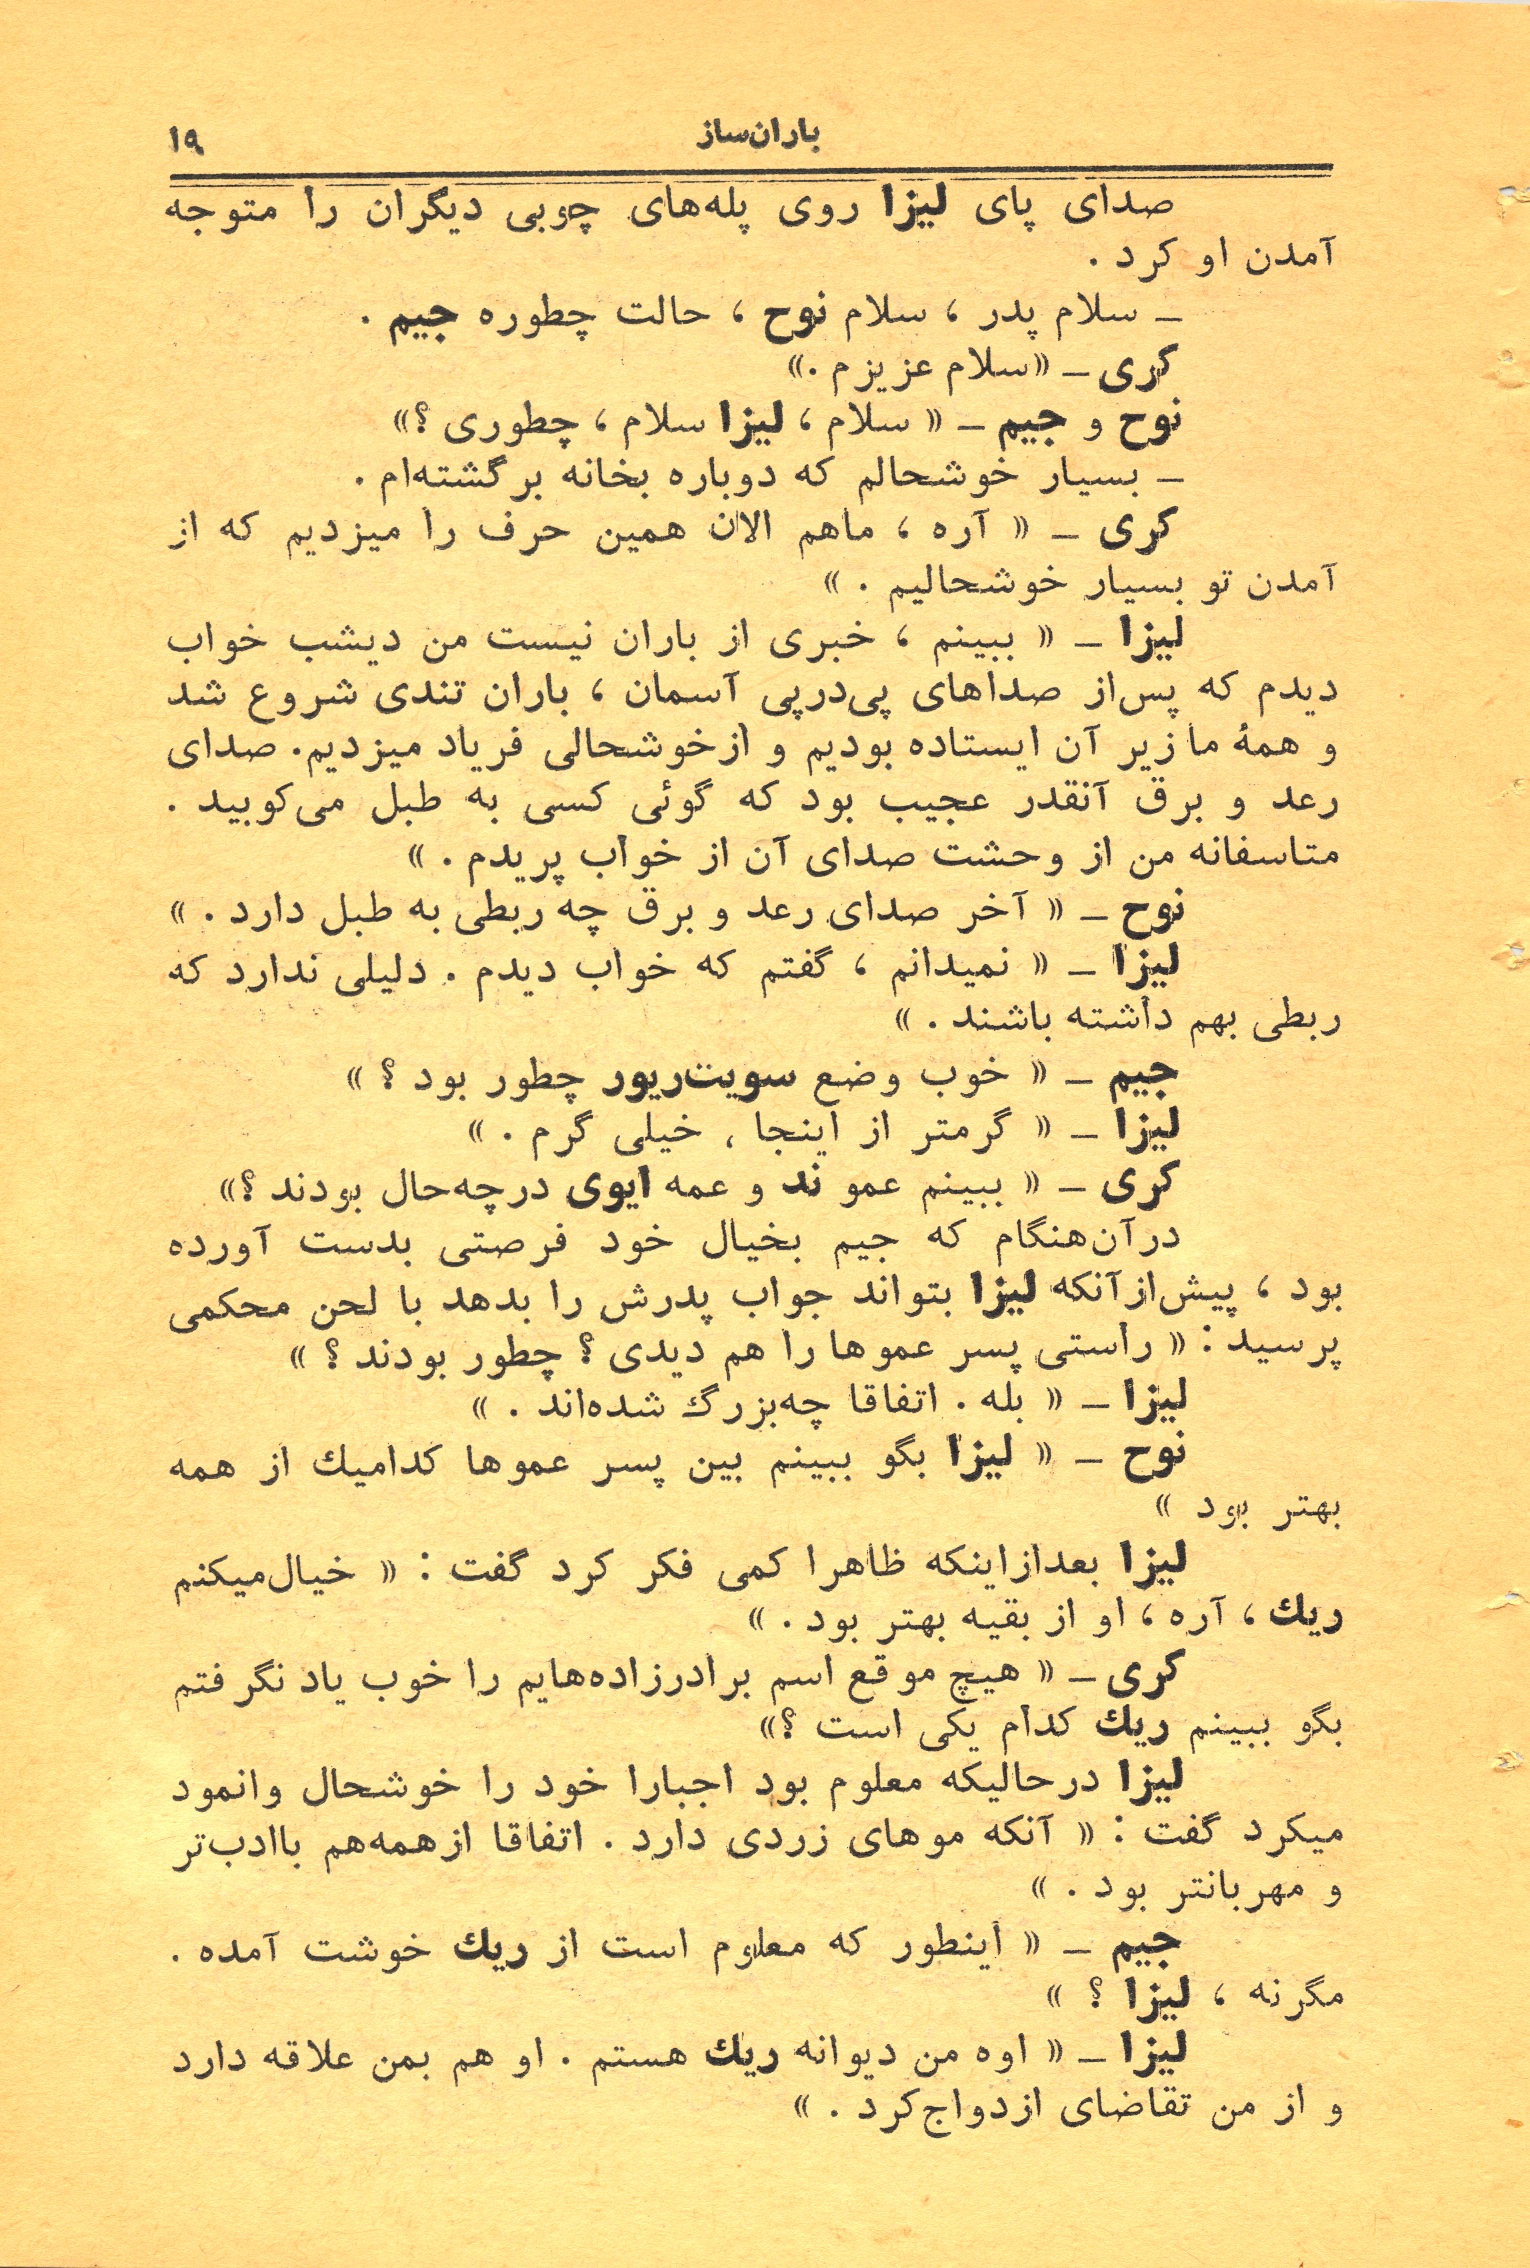 باران‌ساز
۱۹
صدای پای لیزا روی پله‌های چوبی دیگران را متوجه
آمدن او کرد .
ـ سلام پدر ، سلام نوح ، حالت چطوره جیم .
کری ـ «سلام عزیزم .»
نوح و جیم ـ « سلام ، لیزا سلام ، چطوری ؟»
ـ بسیار خوشحالم که دوباره بخانه برگشته‌ام .
کری ـ « آره ، ماهم الان همین حرف را میزدیم که از
آمدن تو بسیار خوشحالیم . »
لیزا ـ « ببینم ، خبری از باران نیست من دیشب خواب
دیدم که پس‌از صداهای پی‌درپی آسمان ، باران تندی شروع شد
و همهٔ ما زیر آن ایستاده بودیم و ازخوشحالی فریاد میزدیم. صدای
رعد و برق آنقدر عجیب بود که گوئی کسی به طبل می‌کوبید .
متاسفانه من از وحشت صدای آن از خواب پریدم . »
نوح ـ « آخر صدای رعد و برق چه ربطی به طبل دارد . »
لیزا ـ « نمیدانم ، گفتم که خواب دیدم . دلیلی ندارد که
ربطی بهم داشته باشند . »
جیم ـ « خوب وضع سویت‌ریور چطور بود ؟ »
لیزا ـ « گرمتر از اینجا ، خیلی گرم . »
کری ـ « ببینم عمو ند و عمه ایوی درچه‌حال بودند ؟»
درآن‌هنگام که جیم بخیال خود فرصتی بدست آورده
بود ، پیش‌ازآنکه لیزا بتواند جواب پدرش را بدهد با لحن محکمی
پرسید : « راستی پسر عموها را هم دیدی ؟ چطور بودند ؟ »
لیزا ـ « بله . اتفاقا چه‌بزرگ شده‌اند . »
نوح ـ « لیزا بگو ببینم بین پسر عموها کدامیك از همه
بهتر بود »
لیزا بعدازاینکه ظاهرا کمی فکر کرد گفت : « خیال‌میکنم
ریك ، آره ، او از بقیه بهتر بود . »
کری ـ « هیچ موقع اسم برادرزاده‌هایم را خوب یاد نگرفتم
بگو ببینم ریك کدام یکی است ؟»
لیزا درحالیکه معلوم بود اجبارا خود را خوشحال وانمود
میکرد گفت : « آنکه موهای زردی دارد . اتفاقا ازهمه‌هم باادب‌تر
و مهربانتر بود . »
جیم ـ « اینطور که معلوم است از ریك خوشت آمده .
مگرنه ، لیزا ؟ »
لیزا ـ « اوه من دیوانه ریك هستم . او هم بمن علاقه دارد
و از من تقاضای ازدواج‌کرد . »